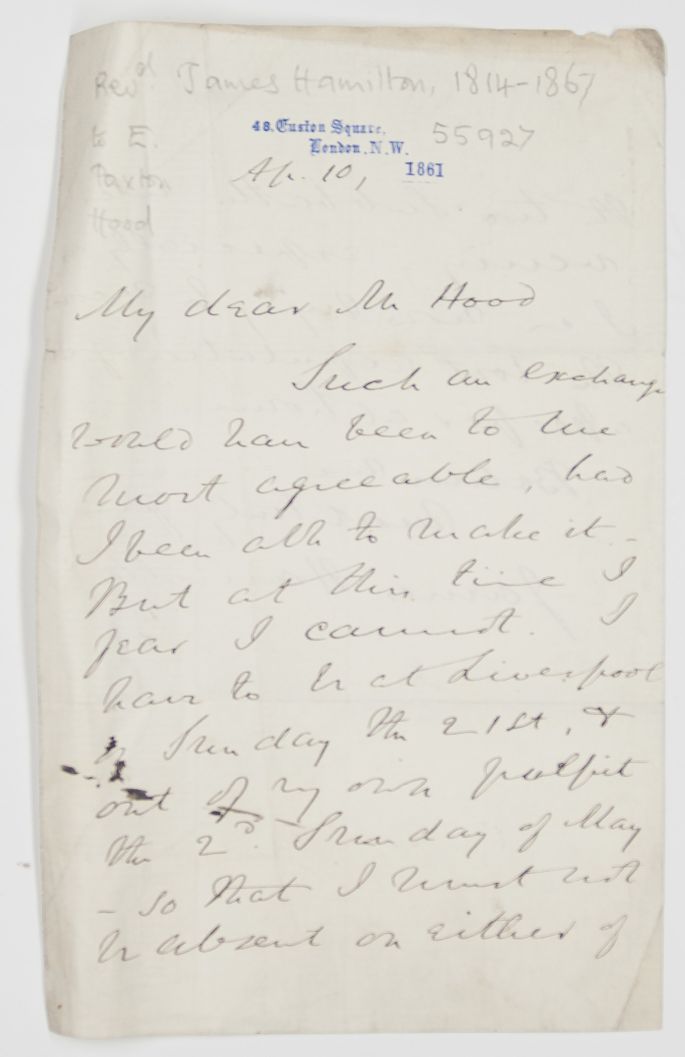 Revd. James Hamilton, 1814-1867
to E.
Paxton
Hood
55927
48. Euston Square,
London, N.W.
Ap. 10, 1861
My dear Mr Hood
Such an exchange
would have been to me
most agreeable, had
I been able to make it -
But at this time I
fear I cannot. I
have to be at Liverpool
on Sunday the 21st, &
out of my own pulpit
the 2d. Sunday of May
- so that I must not
be absent on either of